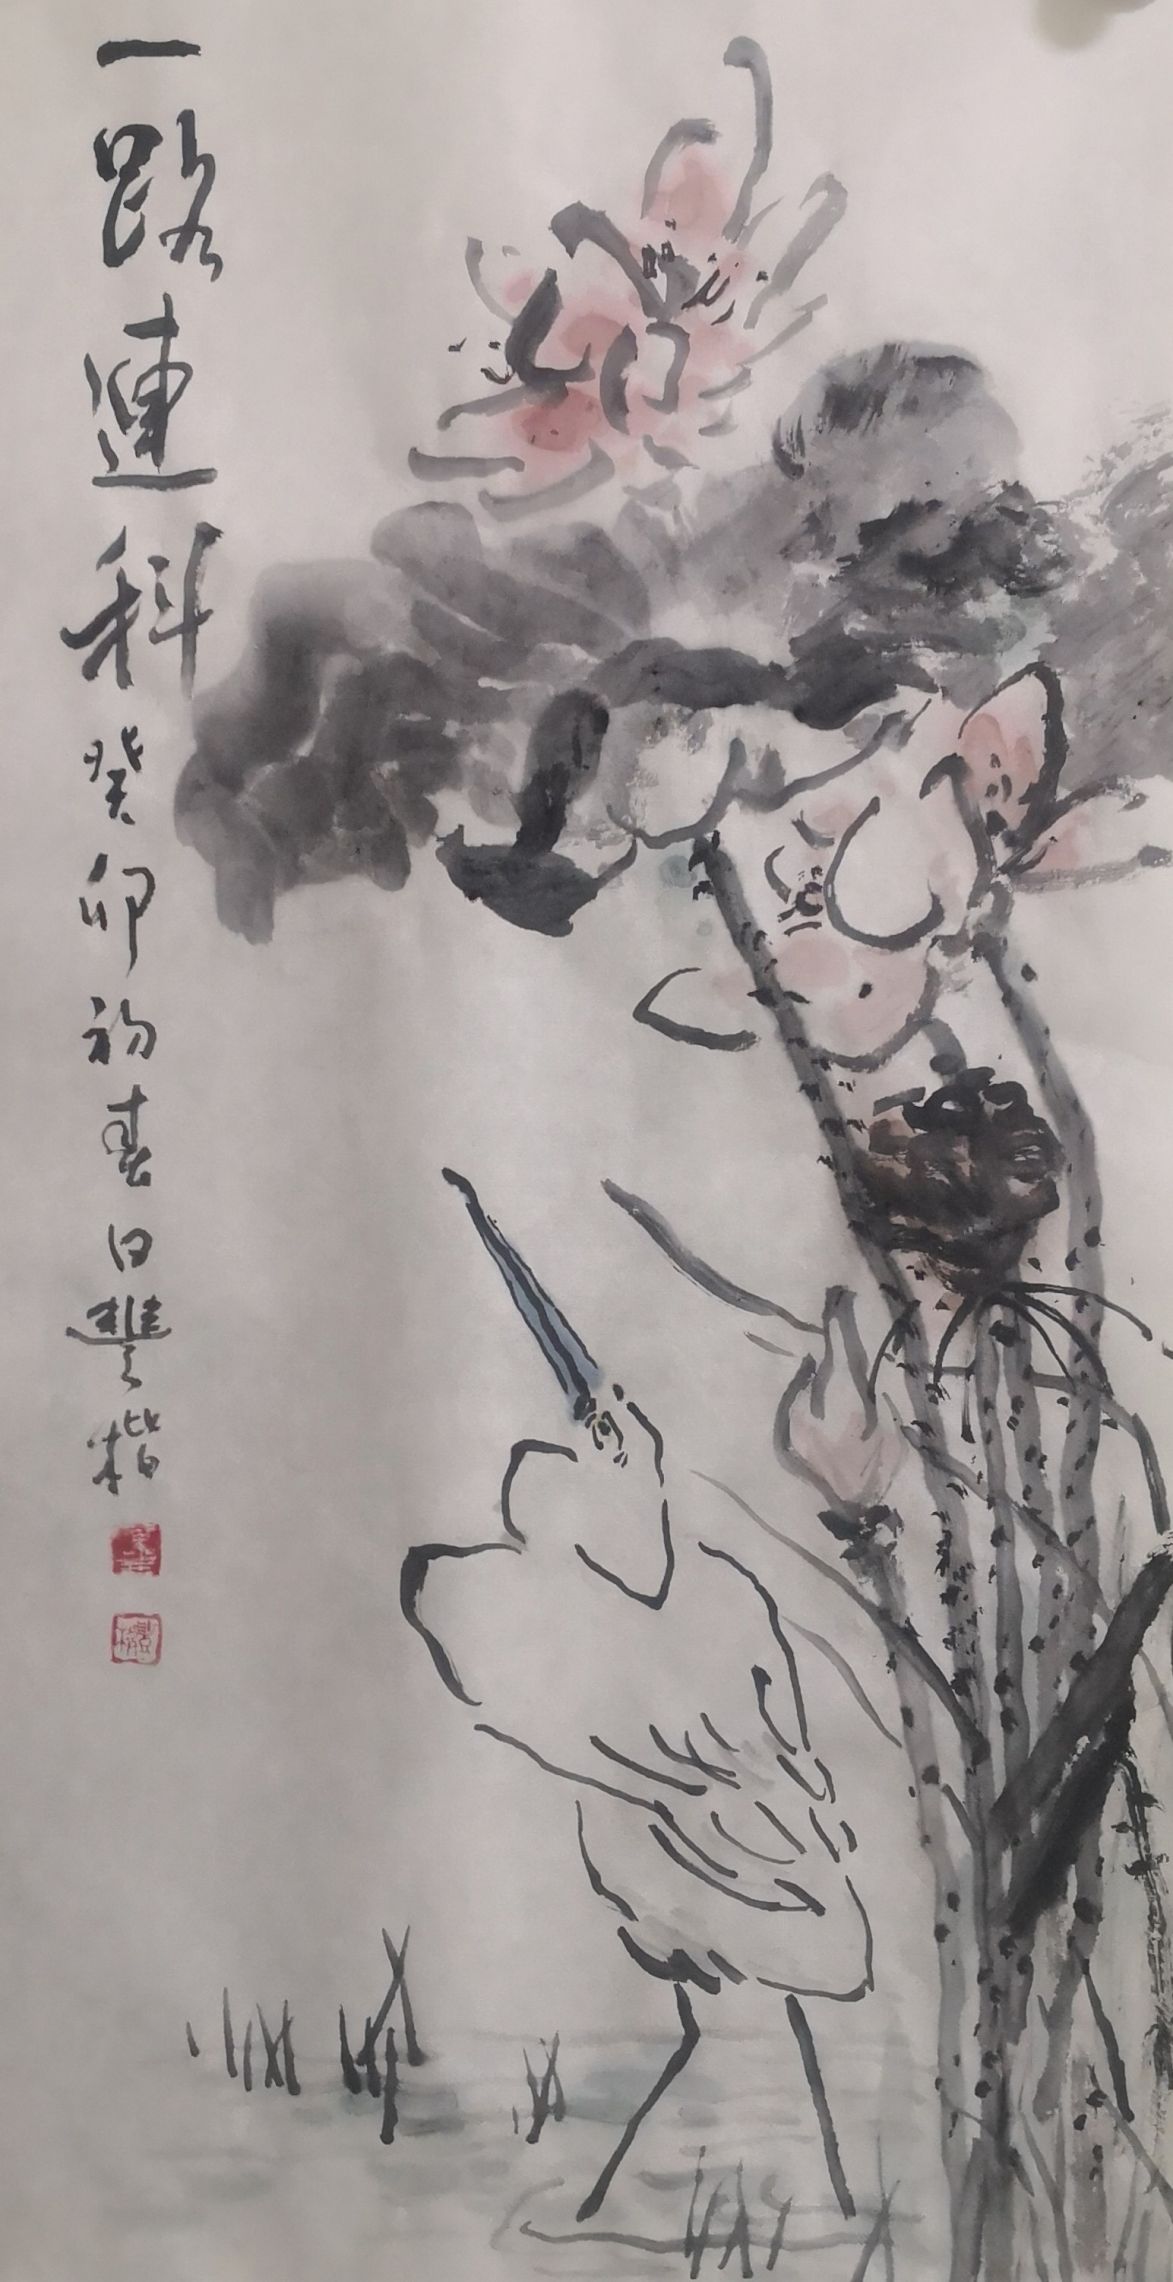 一路連科癸卯初春日豐楷